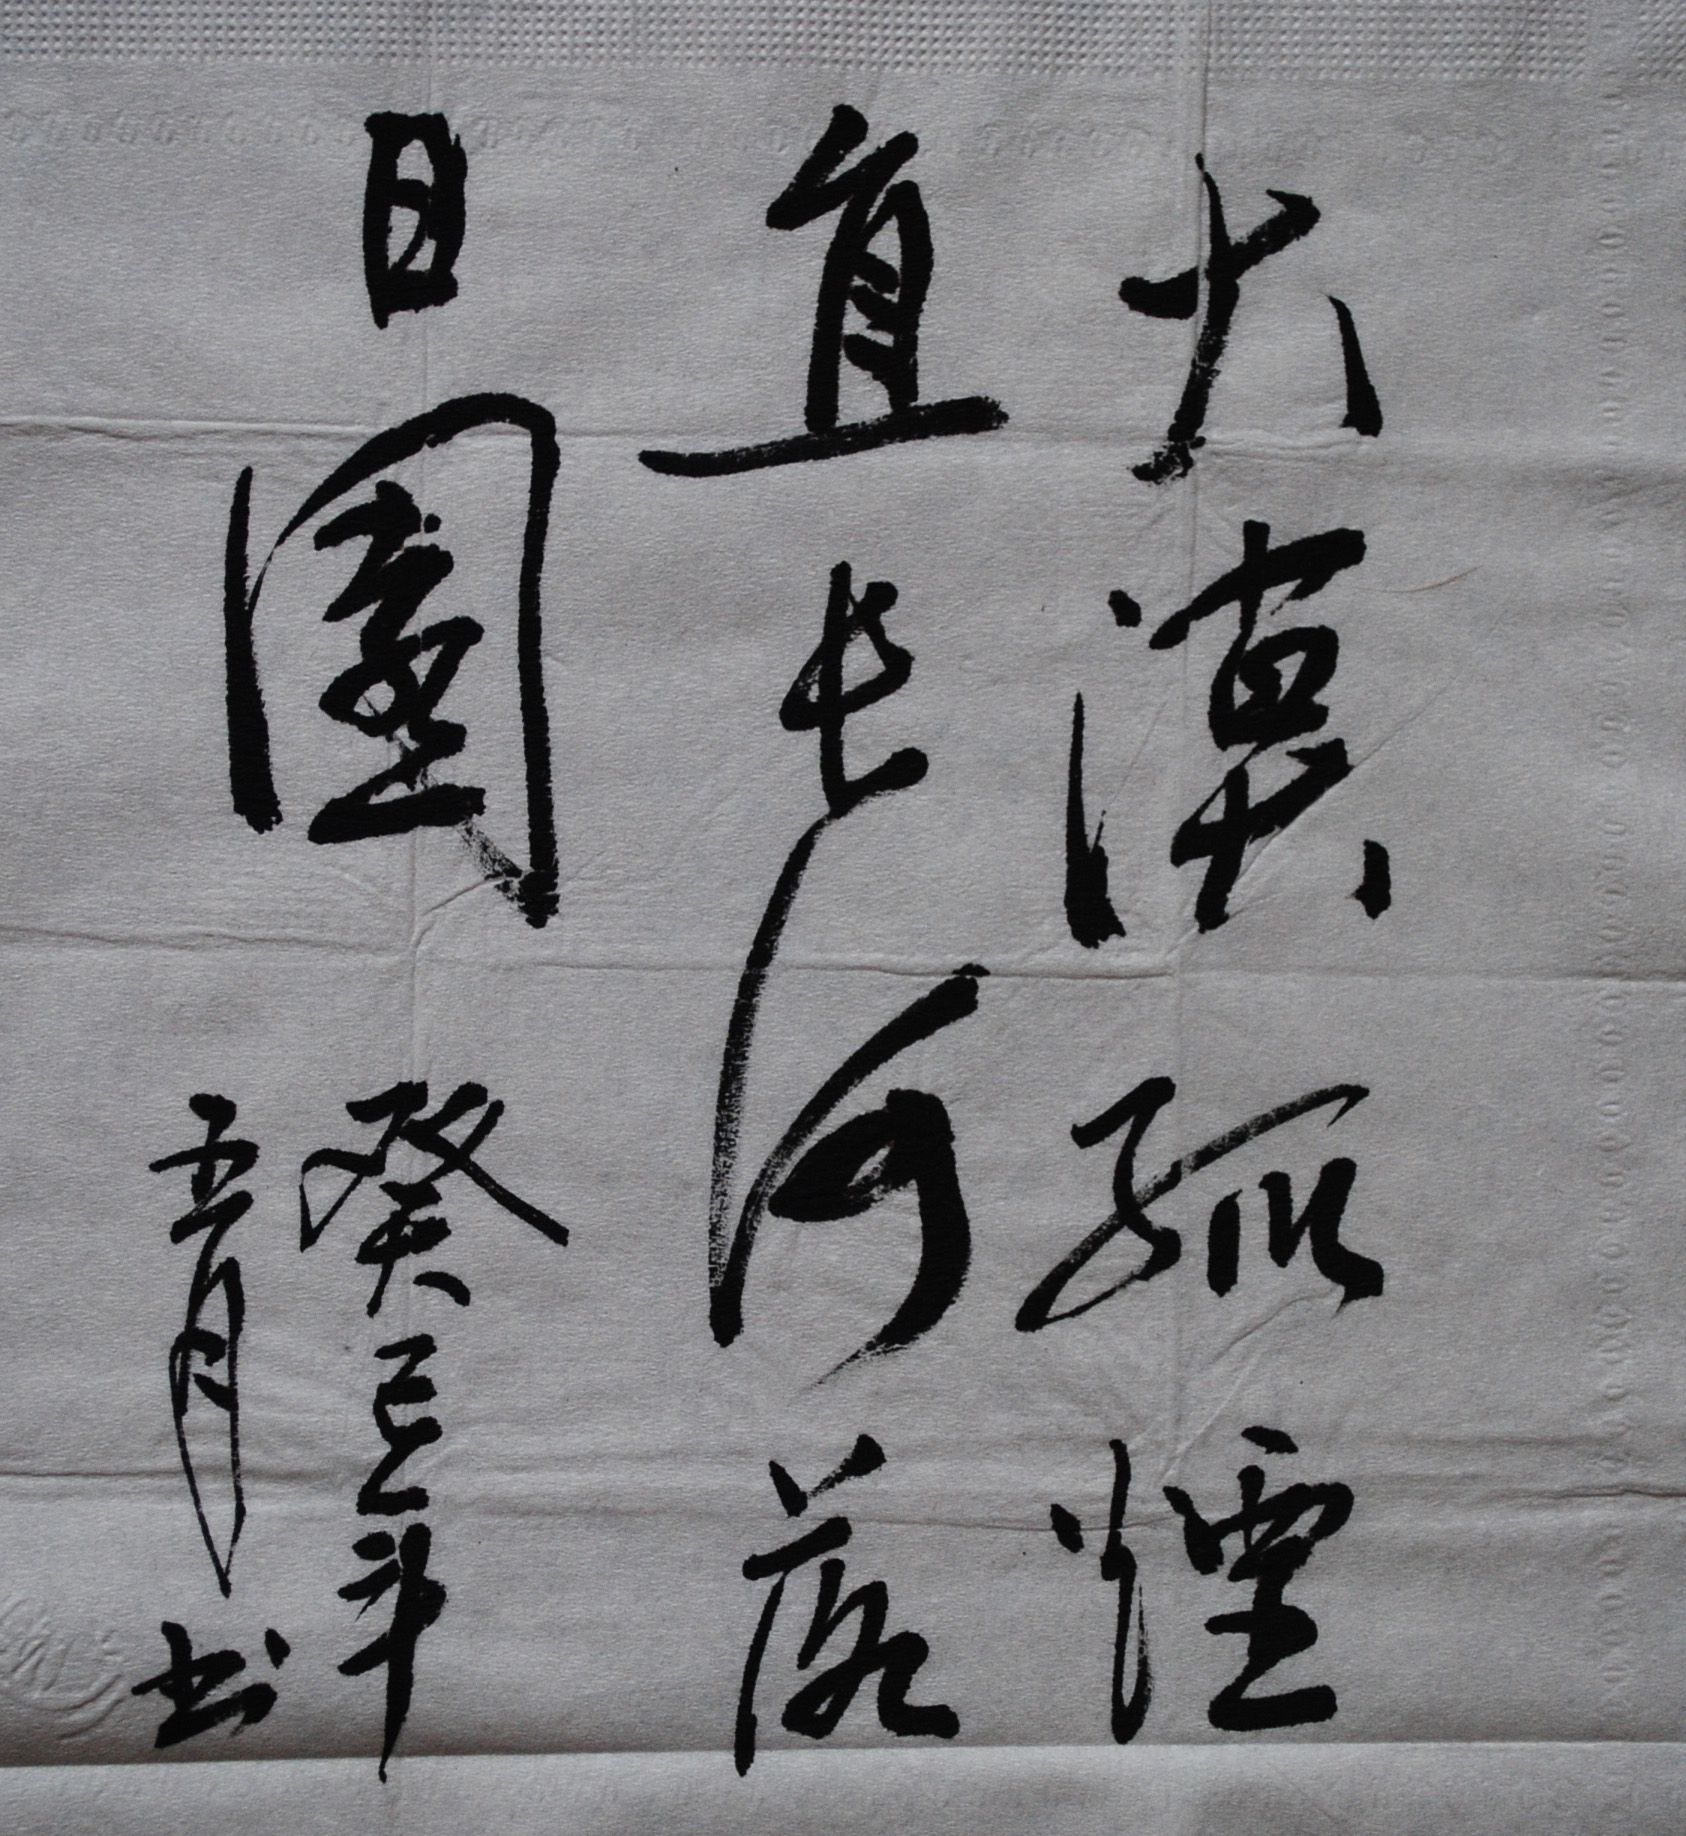 大漠孤煙
直長河落
日圓 癸巳年
五月书